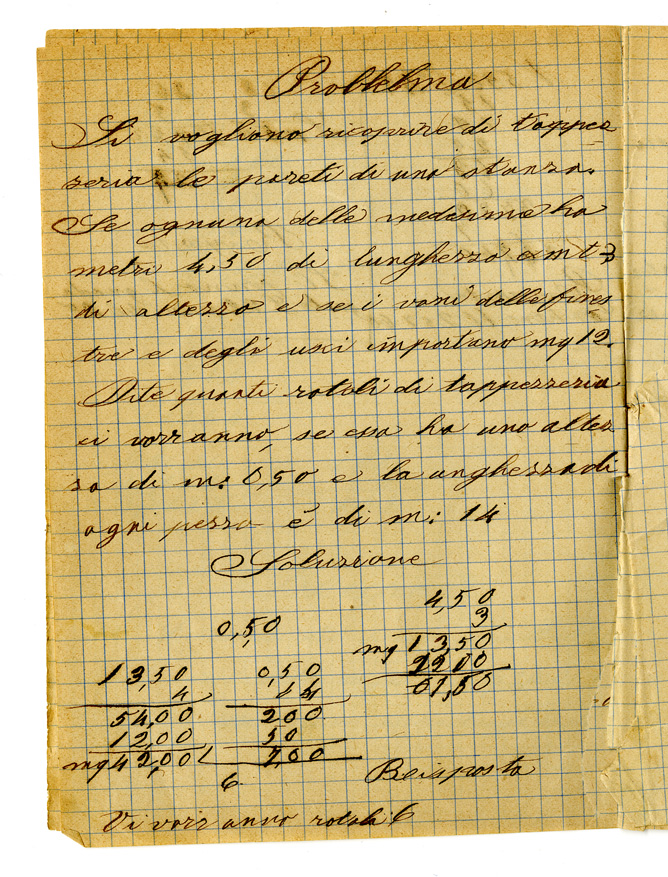 Problema
Si vogliono ricoprire di tappez
zeria le pareti di una stanza.
Se ognuna delle medesime ha
metri 4,50 di lunghezza e mt 3
di altezza e se i vani delle fines
tre e degli usci importano mq 12.
Dite quanti rotoli di tappezzeria
ci vorranno, se essa ha una altez
za di m: 0,50 e la unghezza di
ogni pezza è di m: 14
Soluzione
4,50
3
mq 13,50
0,50
13,50
4
54,00
12,00
mq 42,00
0,50
14
200
50
7,00
6
Reisposta
Vi vorranno rotoli 6